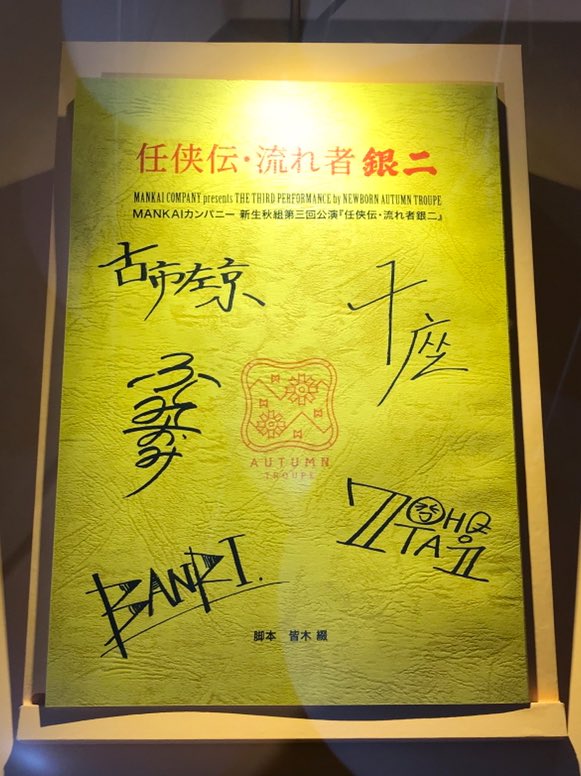 任侠伝・流れ者 銀二
MANKAI COMPANY presents THE THIRD PERFORMANCE by NEWBORN AUTUMN TROUPE
MANKAIカンパニー 新生秋組第三回公演『任侠伝・流れ者銀二』
古市左京
十座
ふみおみ
AUTUMN
TROUPE
BANRI.
脚本 皆木 綴